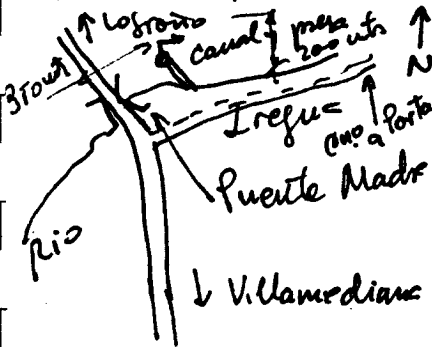 Logroño
canal
presa
200 mts
370 mt
N
Iregua
cno. a Portal
Puente Madre
Rio
Villamediana